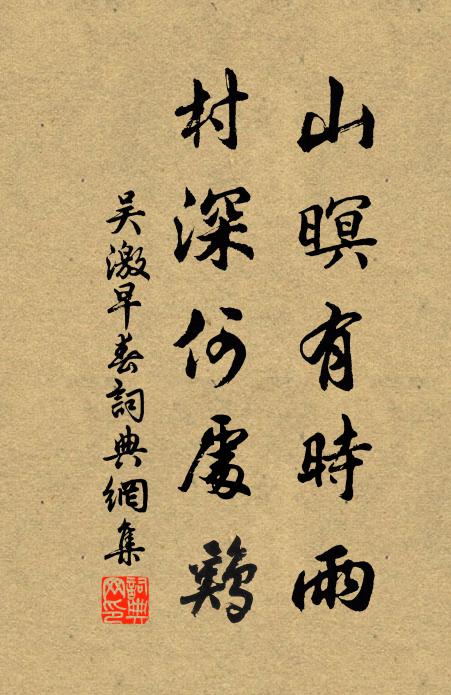 山暝有時雨
村深何處鷄
吴激早春詞典網集
詞典網印